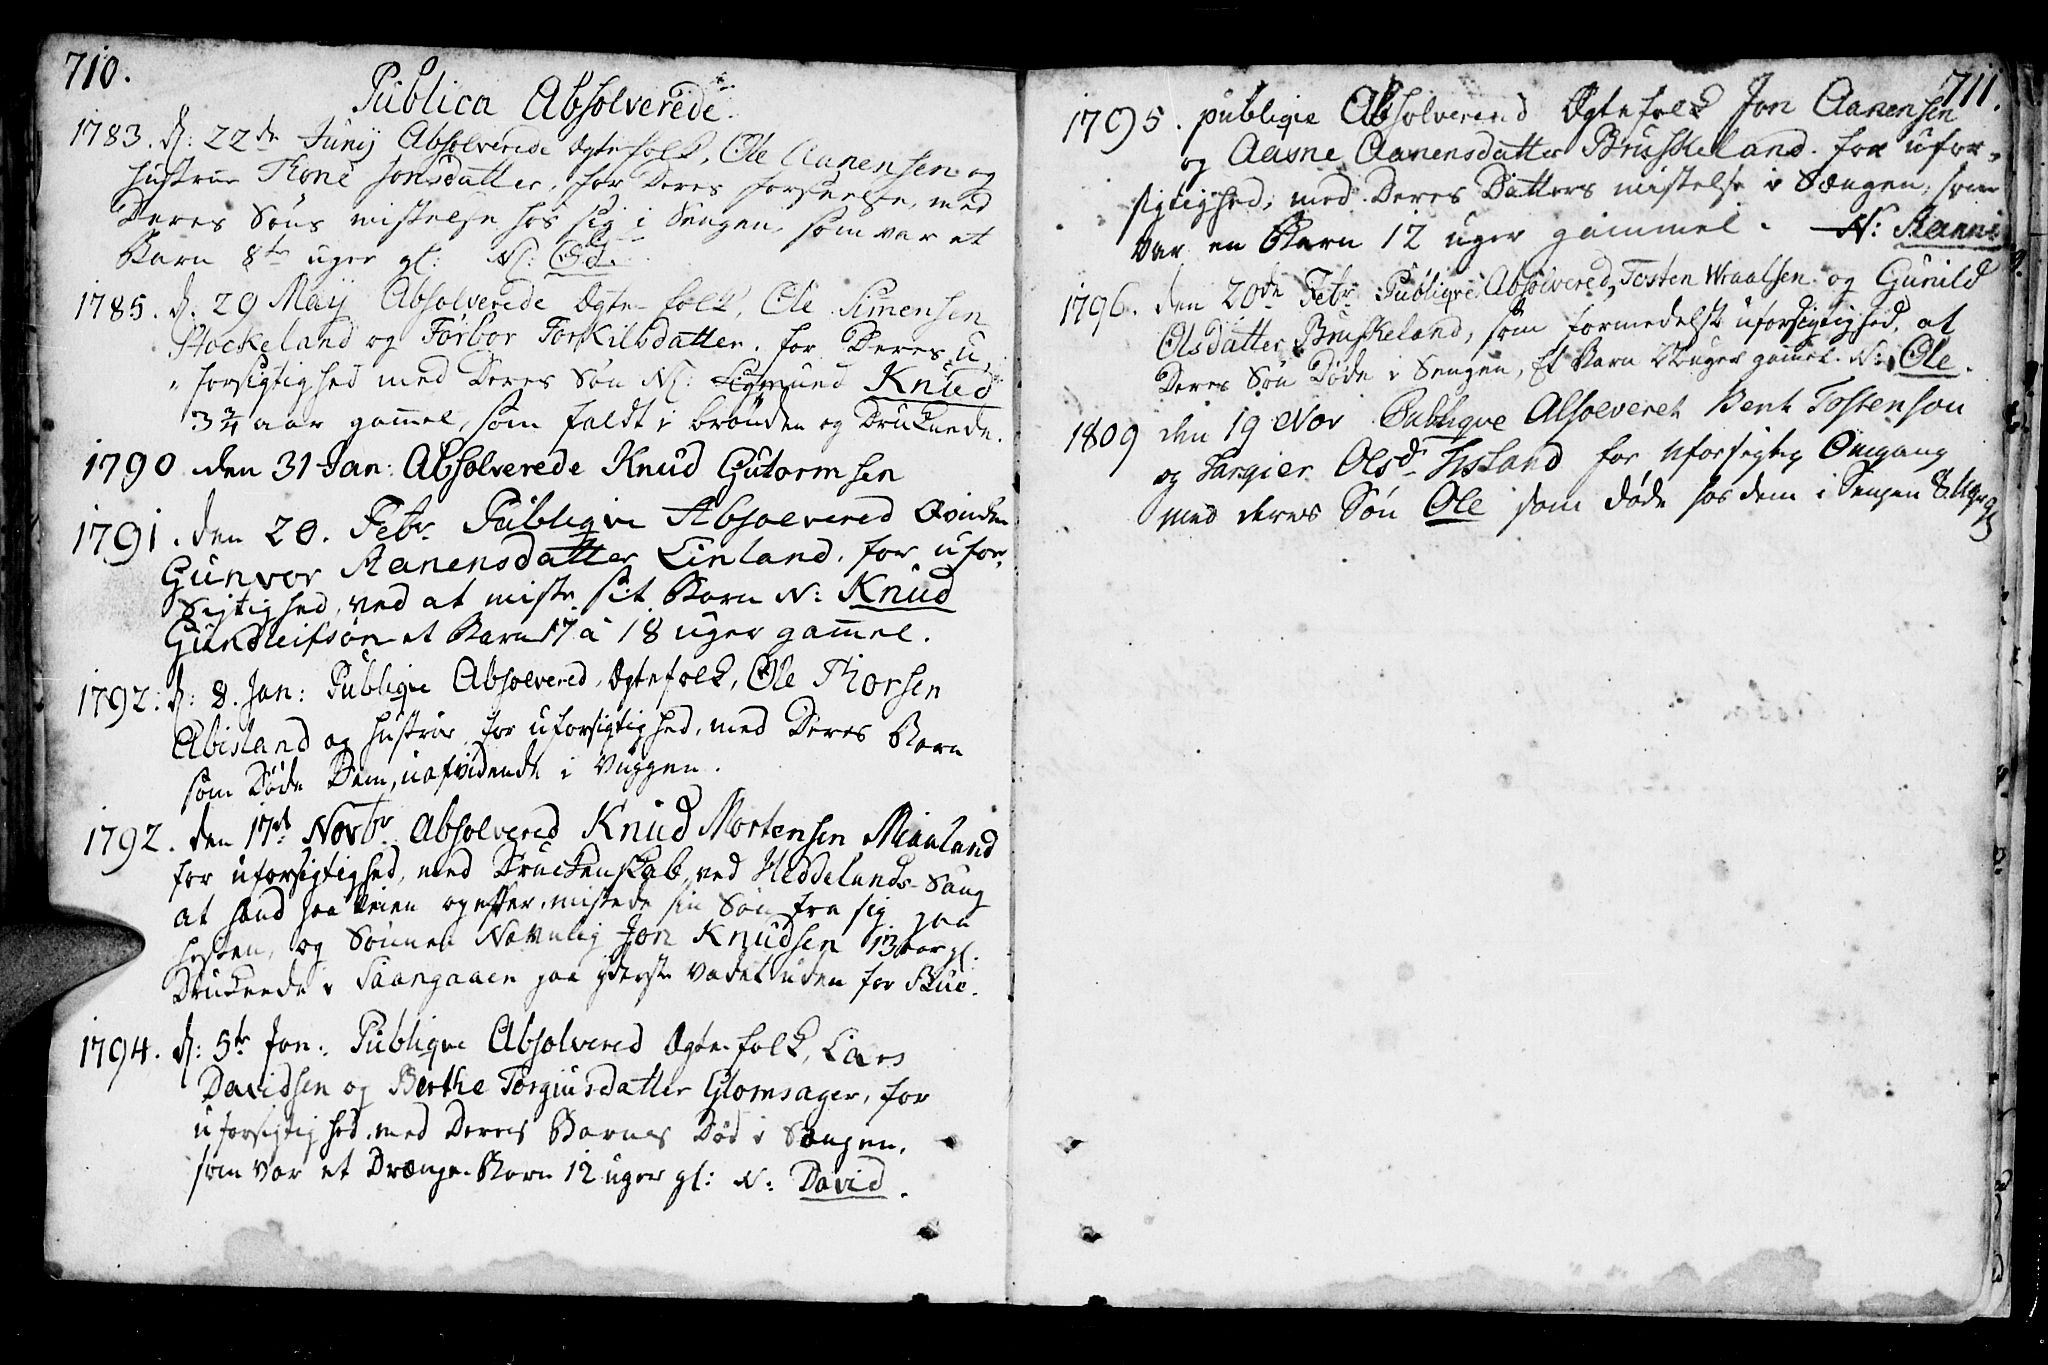 710.
Publica Absolverede
1783. d: 22de Junij Absolverede Ægtefolk, Ole Aanensen og
hustrue Thone Jonsdatter, for Deres forseelse, med
Deres Søns mistelse hos sig i Sengen, som var et
Barn 8te uger gl: N:
1785. d. 29 Maij Absolverede Ægte-folk, Ole Simensen
Stockeland og Torbor Torkilsdatter. for Deres u,
forsigtighed med Deres Søn N: Knud
3¾ aar gamel, som faldt i brønden og Druknede.
1790 den 31 Jan: Absolverede Knud Gutormsen
1791. den 20. Febr. Publiqve Absolvered Qvinden
Gunvor Aanensdatter Linland, for ufor,
sigtighed, ved at miste sit Barn N: Knud
Gundleifsøn et Barn 17 a 18 uger gamel.
1792: d: 8. Jan: Publiqve Absolvered, Ægtefolk, Ole Thorsen
Abisland og hustrue for uforsigtighed, med Deres Barn
som Døde Dem, uafvidende i Vuggen.
1792. den 17de Novbr. Absolvered Knud Mortensen
for uforsigtighed, med Druckenskab, ved Heddelands-Saug
at hand paa Veien mistede sin Søn fra sig paa
hesten, og Sønnen Navnlig Jon Knudsen 13 aar gl.
Druknede i paa yderste Vadet uden for
1794. d: 5te Jan: Publiqve Absolvered Ægte-folk, Lars
Davidsen og Berthe Torgiusdatter Glomsager, for
uforsigtighed med Deres Barnes Død i Sengen,
som var et Drænge-Barn 12 uger gl: N: David.
711.
1795. publiqve Absolvered Ægtefolk Jon Aanensen
og Aasne Aanensdatter Bruskeland. for ufor,
sigtighed, med Deres Datters mistelse i Sængen, som
var en Barn 12 uger gammel. N: Aanni
1796. den 20de Febr. Publiqve Absolvered, Tosten Wraalsen og Gunild
Olsdatter Bruskeland, som formedelst uforsigtighed, at
Deres Søn Døde i Sengen, Et Barn uger gamel. N: Ole.
1809 den 19 Nov Publiqve Absolveret Bent Tostenson
og Targier Olsdr. for Uforsigtig Omgang
med deres Søn Ole som døde hos dem i Sengen 8 Uger gl